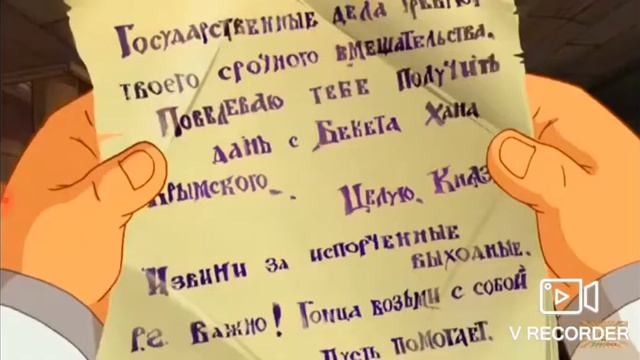 Государственные дела требуют
твоего срочного вмешательства.
Повелеваю тебе получить
дань с Бекета Хана
Крымского.. Целую. Князь
Извини за испорченные
выходные.
P.S. Важно! Гонца возьми с собой
Пусть помогает.
V RECORDER